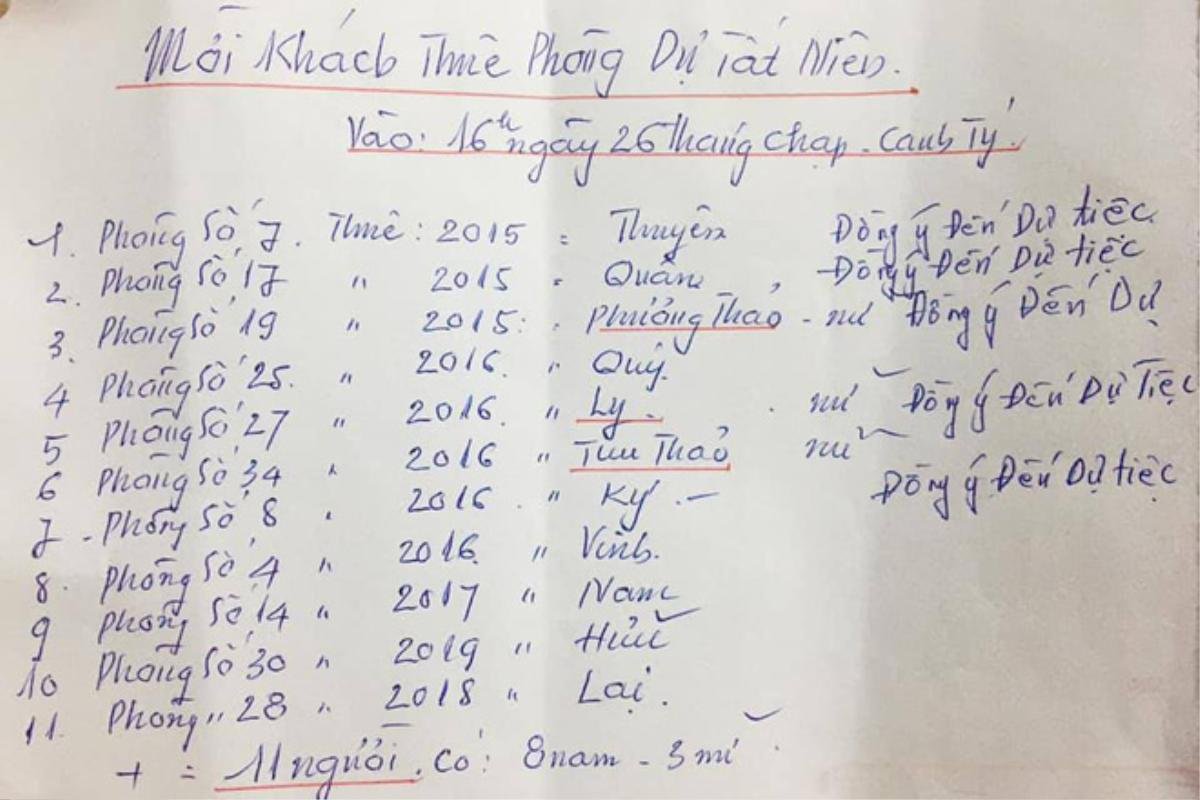 Mời Khách Thuê Phòng Dự Tất Niên.
Vào: 16h ngày 26 Tháng Chạp. Canh Tý.
1. Phòng Số 7. Thuê: 2015 = Thuyên Đồng ý Đến Dự tiệc.
2. Phòng Số 17 " 2015 - Quân Đồng ý Đến Dự tiệc
3. Phòng Số 19 " 2015: . Phương Thảo - nữ Đồng ý Đến Dự
4 Phòng Số 25. " 2016. " Quý.
5 Phòng Số 27 " 2016. " Ly. . nữ Đồng ý Đến Dự Tiệc
6 Phòng Số 34 " 2016 " Thu Thảo nữ
7 - Phòng Số 8 " 2016. " Ký. - Đồng ý Đến Dự tiệc
8. Phòng Số 4 " 2016. " Vinh.
9 Phòng Số 14 " 2017 " Nam
10 Phòng Số 30 " 2019 " Hữu
11. Phòng " 28 " 2018 " Lại.
+ = 11 người. Có: 8 nam - 3 nữ.